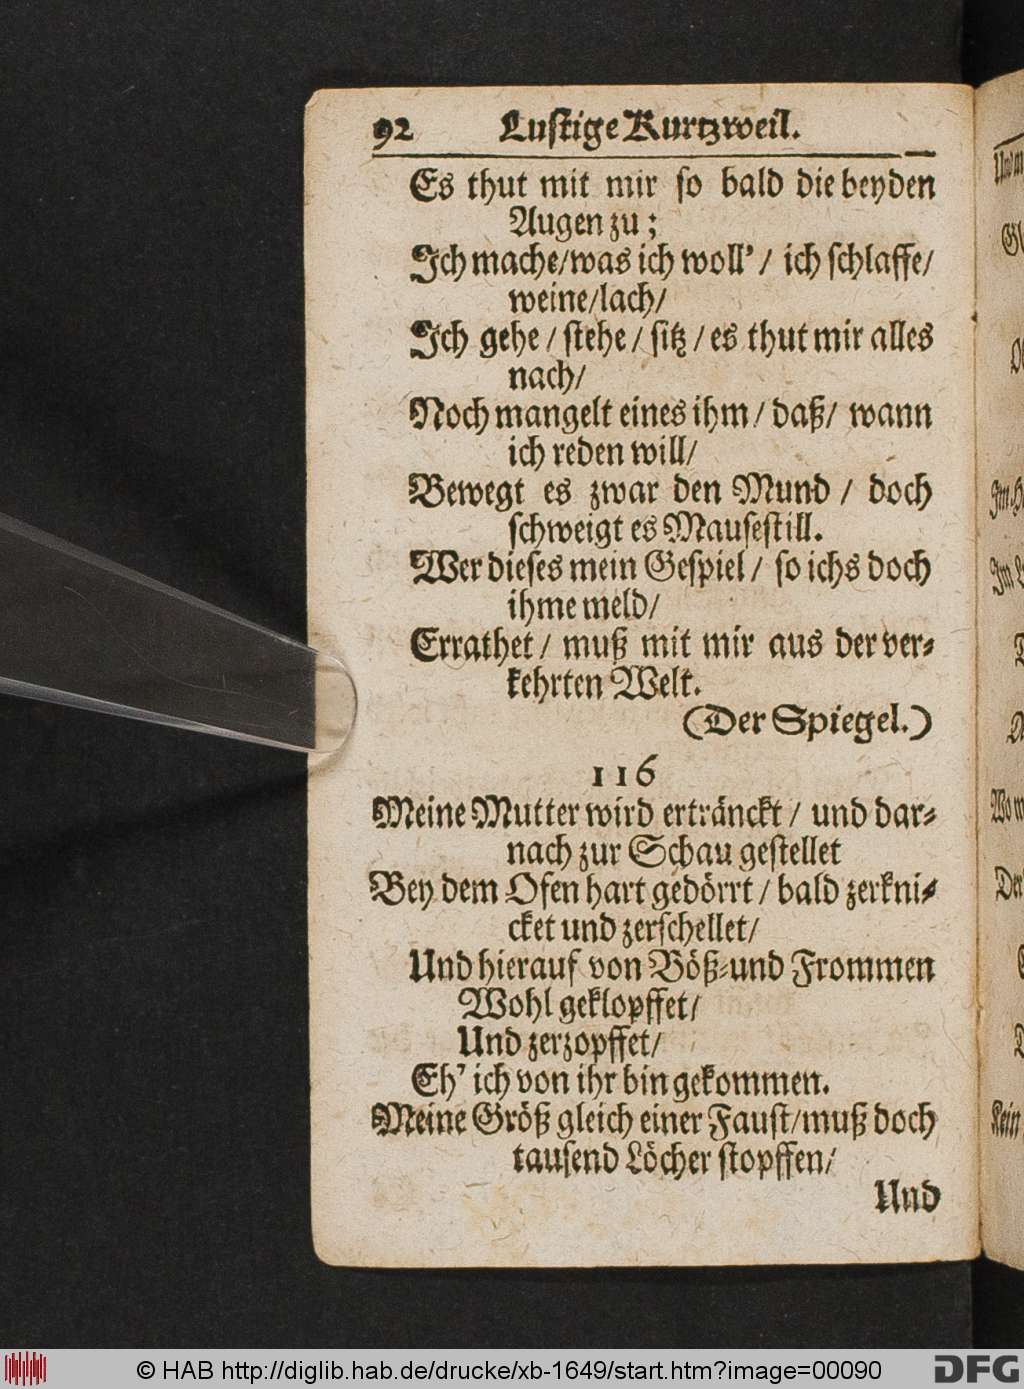 92 Lustige Kurtzweil.
Es thut mit mir so bald die beyden
Augen zu;
Ich mache/was ich woll' / ich schlaffe/
weine/lach/
Ich gehe / stehe / sitz / es thut mir alles
nach/
Noch mangelt eines ihm / daß/ wann
ich reden will/
Bewegt es zwar den Mund / doch
schweigt es Mausestill.
Wer dieses mein Gespiel / so ichs doch
ihme meld/
Errathet / muß mit mir aus der ver-
kehrten Welt.
(Der Spiegel.)
116
Meine Mutter wird ertränckt / und dar-
nach zur Schau gestellet
Bey dem Ofen hart gedörrt / bald zerkni-
cket und zerschellet/
Und hierauf von Böß-und Frommen
Wohl geklopffet/
Und zerzopffet/
Eh' ich von ihr bin gekommen.
Meine Größ gleich einer Faust/muß doch
tausend Löcher stopffen/
Und
© HAB http://diglib.hab.de/drucke/xb-1649/start.htm?image=00090
DFG